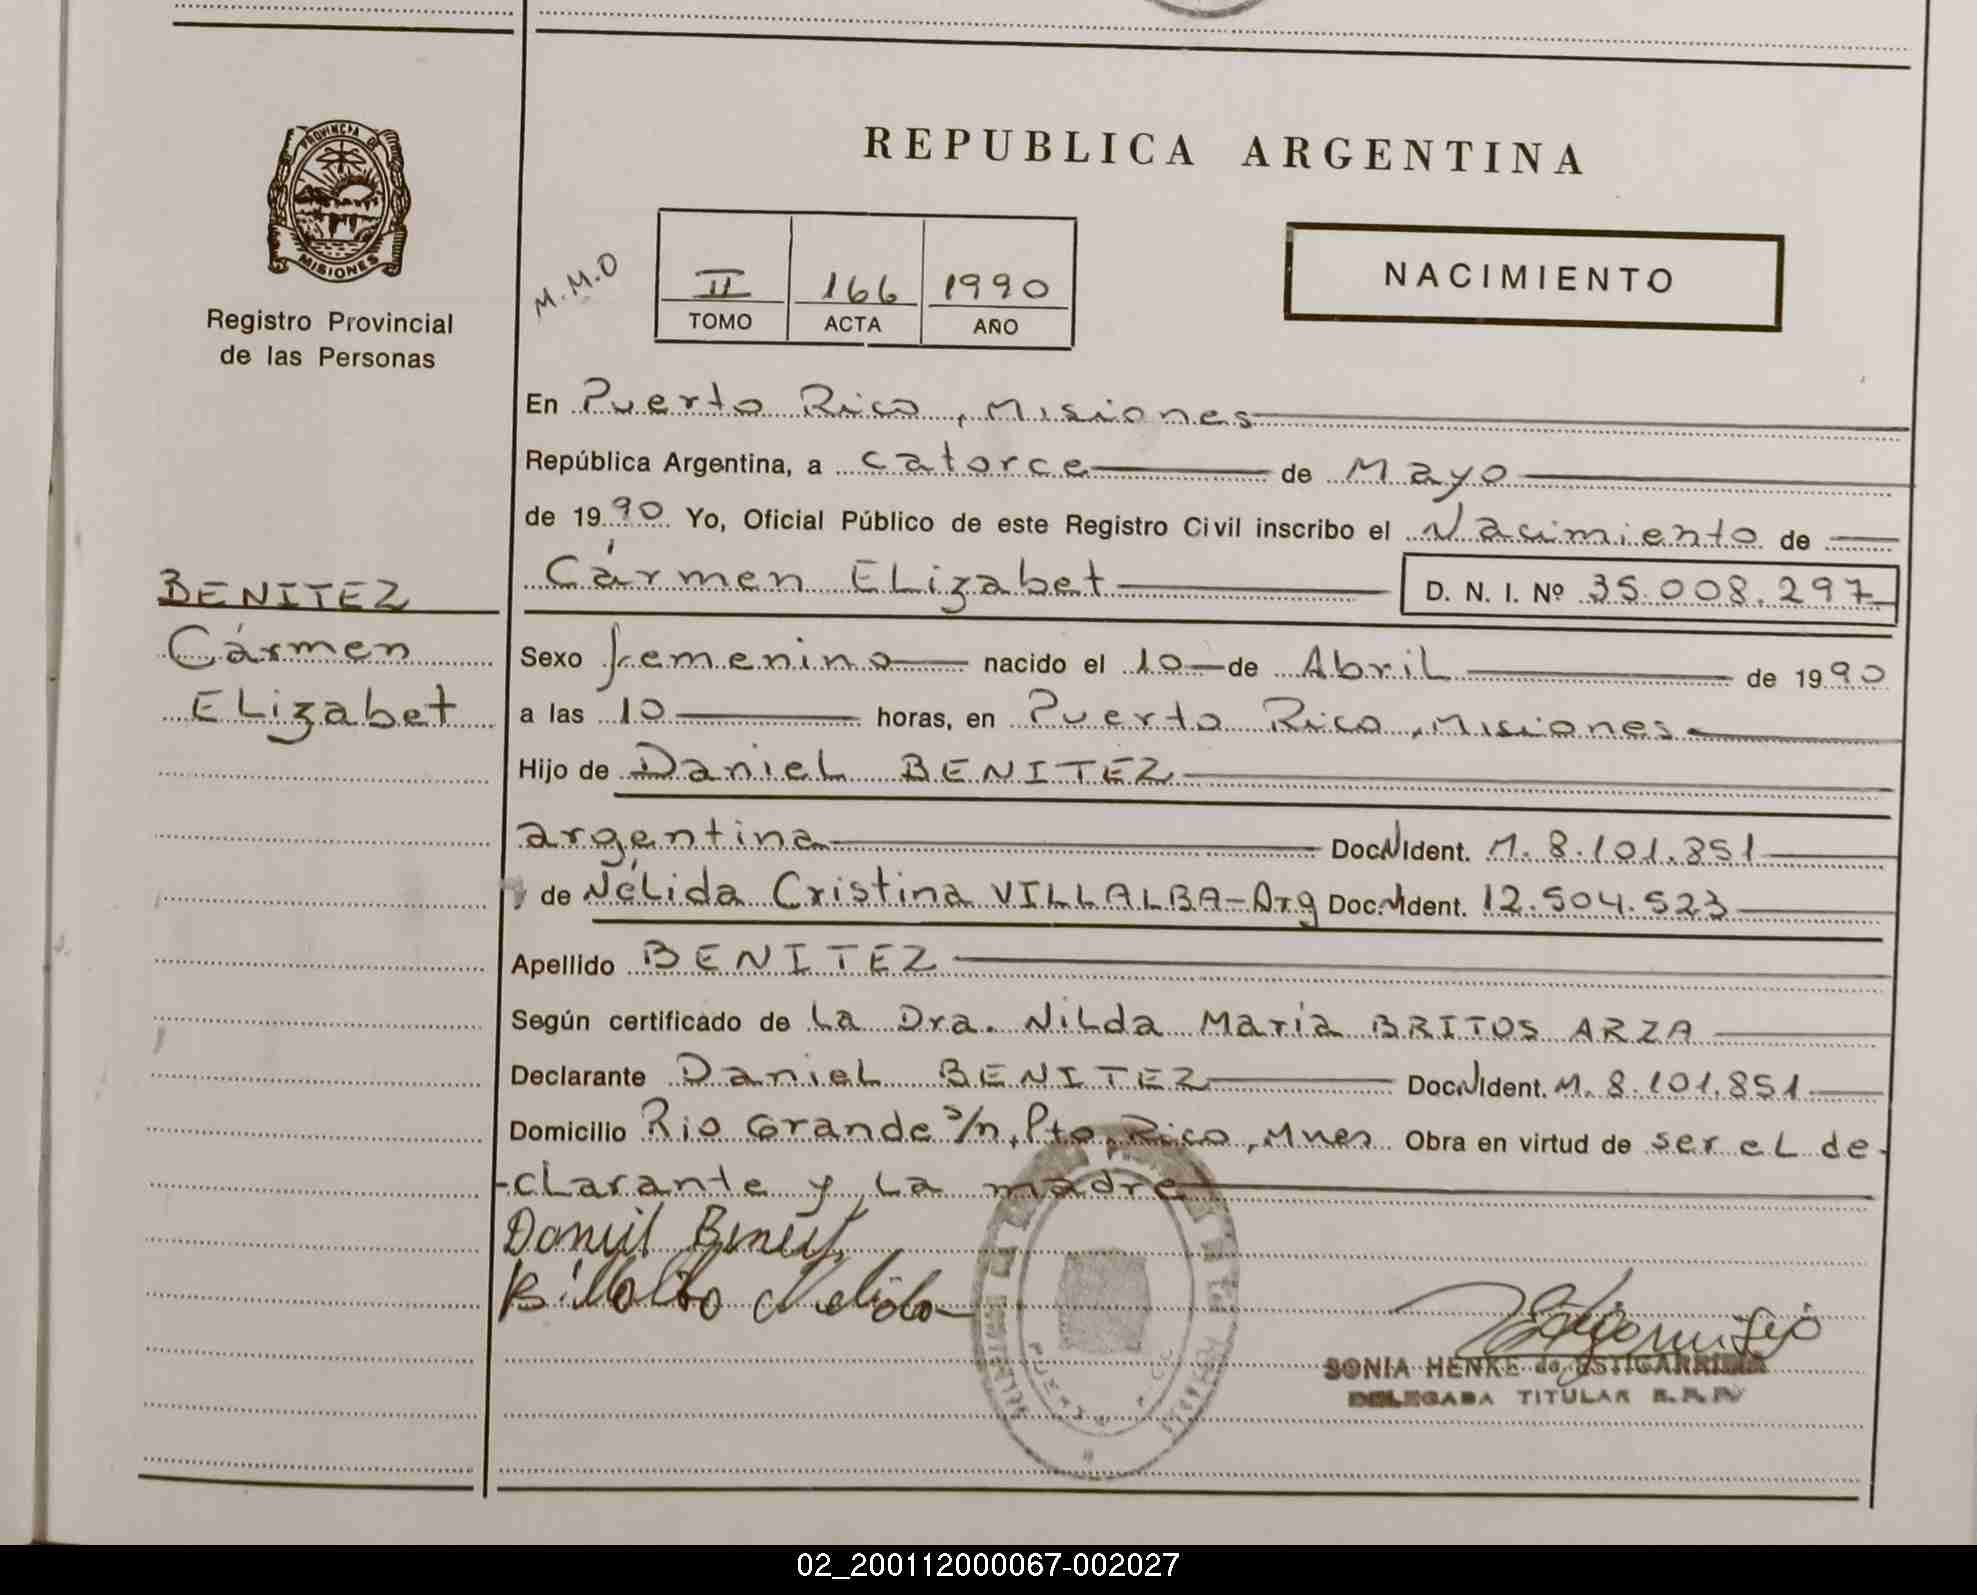 REPUBLICA ARGENTINA
PROVINCIA DE
MISIONES
Registro Provincial
de las Personas
M.M.O
II 166 1990
TOMO ACTA AÑO
NACIMIENTO
En Puerto Rico, Misiones
República Argentina, a catorce de Mayo
de 1990 Yo, Oficial Público de este Registro Civil inscribo el Nacimiento de
Cármen ELizabet D. N. I. Nº 35.008.297
BENITEZ
Cármen
ELizabet
Sexo femenino nacido el 10 de Abril de 1990
a las 10 horas, en Puerto Rico, Misiones
Hijo de Daniel BENITEZ
argentina Doc.N.Ident. M. 8.101.851
y de Nélida Cristina VILLALBA-Arg Doc.N.Ident. 12.504.523
Apellido BENITEZ
Según certificado de La Dra. Nilda María BRITOS ARZA
Declarante Daniel BENITEZ Doc.N.Ident. M. 8.101.851
Domicilio Rio Grande s/n, Pto, Rico, Mnes Obra en virtud de ser el de-
-clarante y La madre
Daniel Benit
Billalba Nelida
PUERTO RICO
SONIA HENKE de ESTIGARRIBIA
DELEGADA TITULAR R.P.P.
02_200112000067-002027